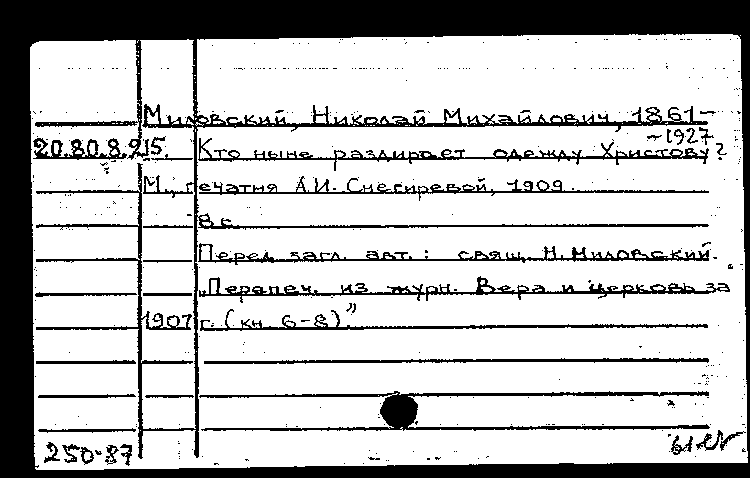 Миловский, Николай Михайлович, 1861-
-1927
20.80.8.215. Кто ныне раздирает одежду Христову?
М., печатня А.И. Снегиревой, 1909.
8 с.
Перед загл. авт.: свящ. Н. Миловский.
„Перепеч. из журн. Вера и церковь за
1907 г. (кн. 6-8)."
250-87